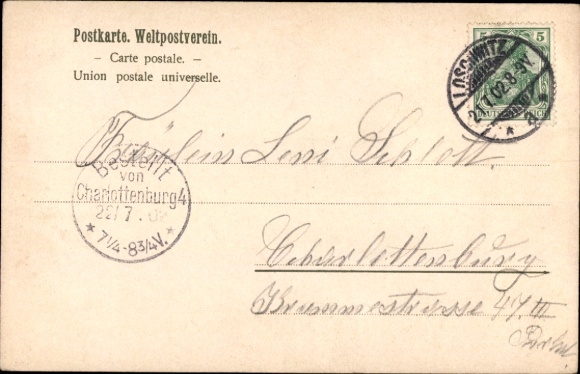 Postkarte. Weltpostverein.
– Carte postale. –
Union postale universelle.
5 5
LOSCHWITZ
21.7.02. 8-9V.
Fräulein Leni Schlott.
Bestellt
von
Charlottenburg 4
22/7. 02
* 7¼-8¾V. *
Charlottenburg
Krummestrasse 47 III